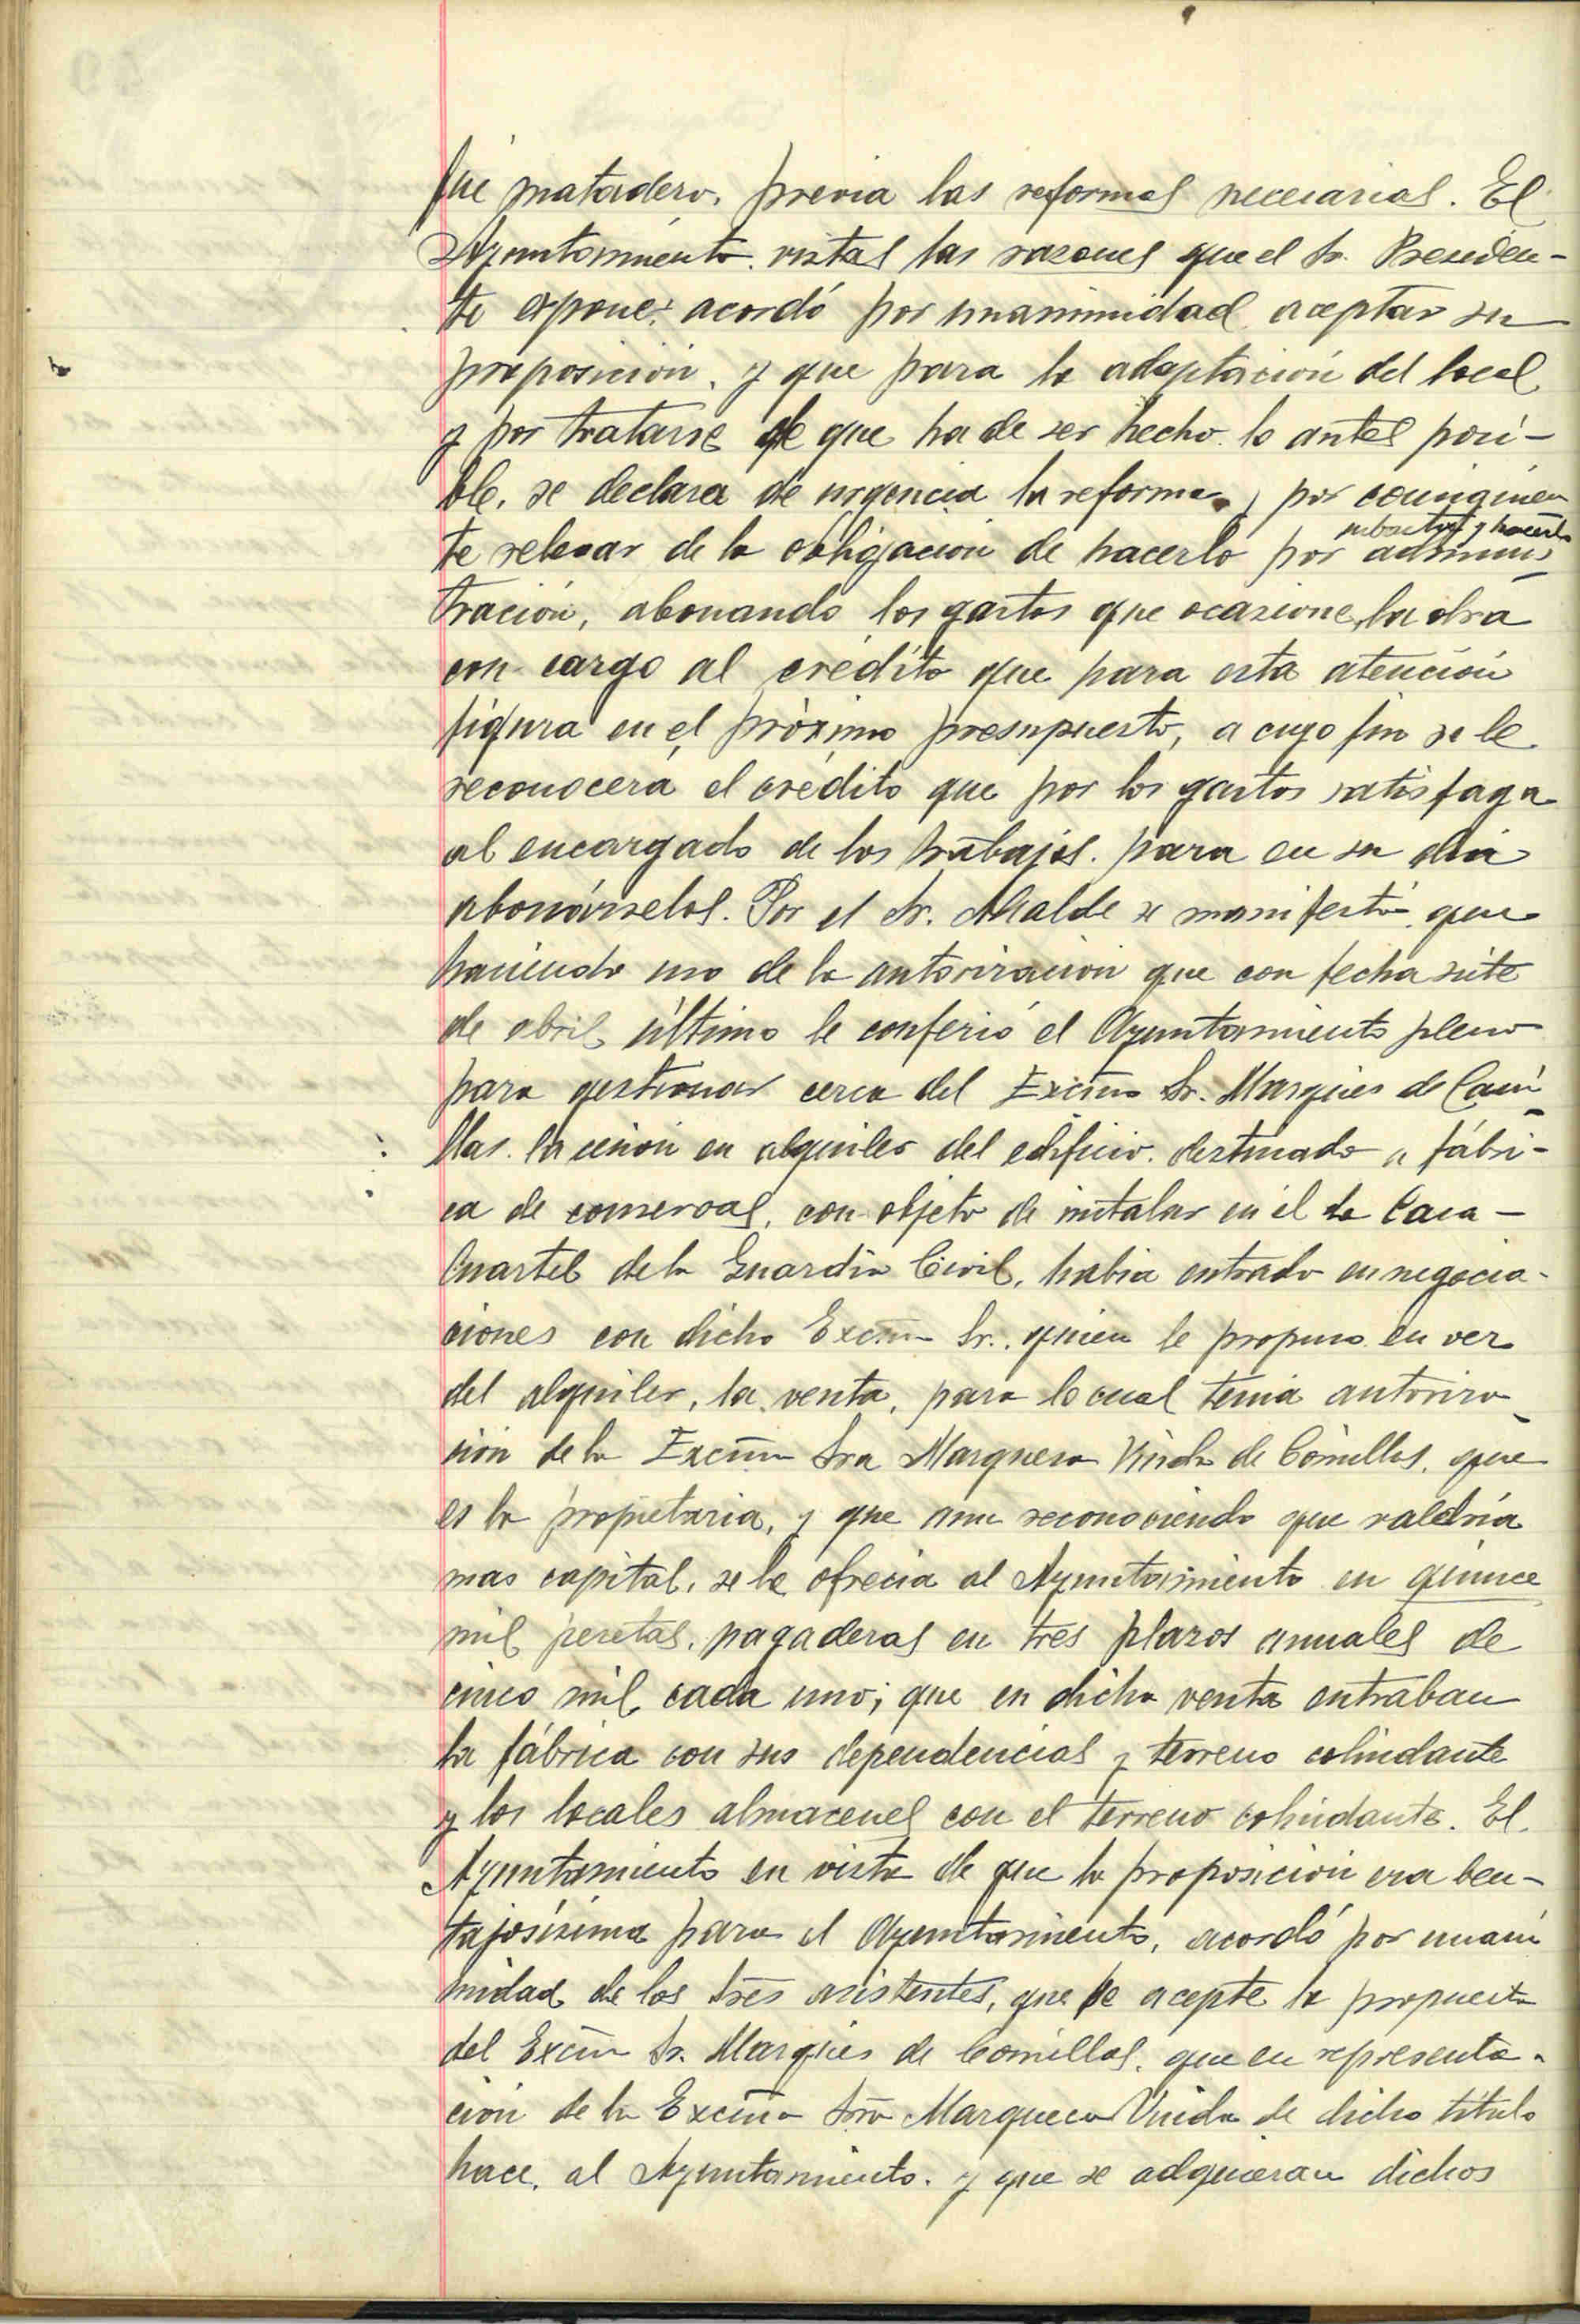 fué matadero, previa las reformas necesarias. El
Ayuntamiento vistas las razones que el Sr. Presiden-
te expone, acordó por unanimidad aceptar su
proposición, y que para la adaptación del local
y por tratarse de que ha de ser hecho lo antes posi-
ble, se declara de urgencia la reforma, y por consiguien
te relevar de la obligación de hacerlo por subasta y hacerlo adminis
tración, abonando los gastos que ocasione la obra
con cargo al crédito que para esta atención
figura en el próximo presupuesto, a cuyo fin se le
reconocerá el crédito que por los gastos satisfaga
al encargado de los trabajos para en su dia
abonárselos. Por el Sr. Alcalde se manifestó que
haciendo uso de la autorización que con fecha siete
de abril último le confirió el Ayuntamiento pleno
para gestionar cerca del Excmo Sr. Marqués de Comi
llas la cesión en alquiler del edificio destinado a fábri-
ca de conservas, con objeto de instalar en él la Casa-
Cuartel de la Guardia Civil, habia entrado en negocia-
ciones con dicho Excmo Sr. quien le propuso en vez
del alquiler, la venta, para lo cual tenia autoriza-
ción de la Excma Sra Marquesa Viuda de Comillas, que
es la propietaria, y que aun reconociendo que valdria
mas capital, se le ofrecia al Ayuntamiento en quince
mil pesetas, pagaderas en tres plazos anuales de
cinco mil cada uno; que en dicha venta entraban
la fábrica con sus dependencias y terreno colindante
y los locales almacenes con el terreno colindante. El
Ayuntamiento en vista de que la proposición era ben-
tajosísima para el Ayuntamiento, acordó por unani
midad de los tres asistentes, que se acepte la propuesta
del Excmo Sr. Marqués de Comillas, que en representa-
ción de la Excma Sra Marquesa Viuda de dicho título
hace al Ayuntamiento y que se adquieran dichos